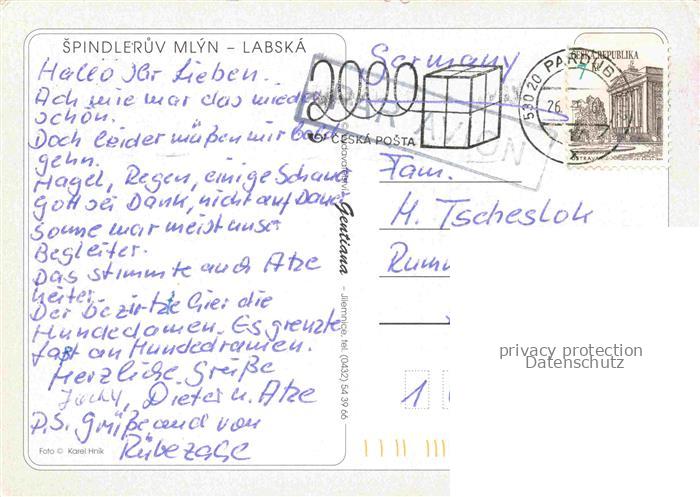 ŠPINDLERŮV MLÝN – LABSKÁ
Hallo Ihr Lieben.
Ach wie war das wieder
schön.
Doch leider müßen wir bald
gehn.
Hagel, Regen, einige Schauer
Gott sei Dank, nicht auf Dauer
Sonne war meist unser
Begleiter.
Das stimmte auch Atze
heiter.
Der bezirtze hier die
Hundedamen. Es grenzte
fast an Hundedramen.
Herzliche Grüße
Jacky, Dieter u. Atze
P.S. Grüße auch von
Rübezahl
Foto © Karel Hník
Gentiana – Jilemnice, tel. (0432) 54 39 66
2000
ČESKÁ POŠTA
PAR AVION
530 20 PARDUB
26.
ČESKÁ REPUBLIKA
7
OSTRAVA
Germany
Fam.
H. Tscheslok
Rumm
1
privacy protection
Datenschutz